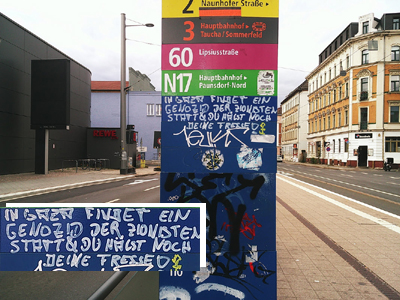 2 Naunhofer Straße ▸
3 Hauptbahnhof ▸
Taucha / Sommerfeld
60 Lipsiusstraße
N17 Hauptbahnhof ▸
Paunsdorf-Nord
IN GAZA FINDET EIN
GENOZID DER ZIONISTEN
STATT & DU HÄLST NOCH
DEINE FRESSE
IN GAZA FINDET EIN
GENOZID DER ZIONISTEN
STATT & DU HÄLST NOCH
DEINE FRESSE